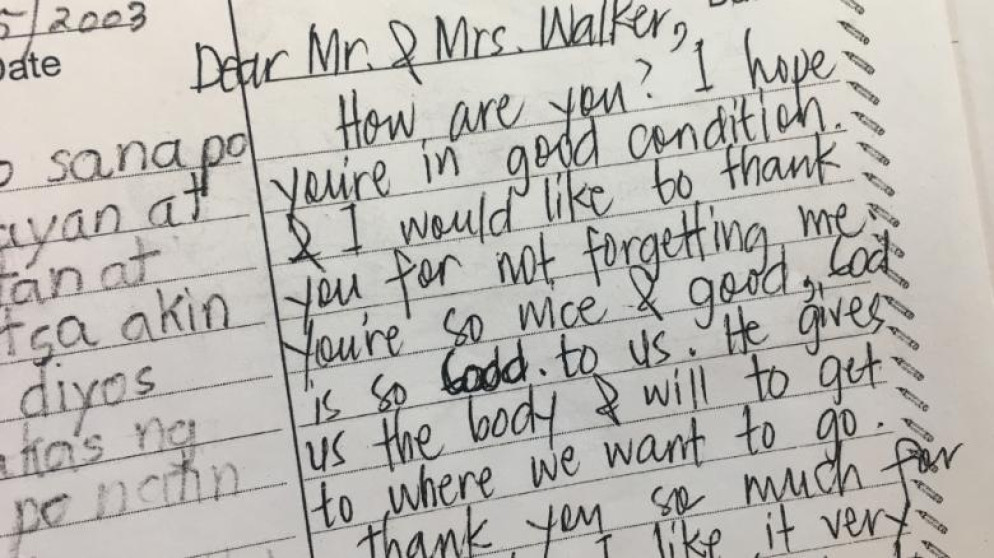 5/2003
Date
sana po
ayan at
tan at
tsa akin
diyos
ng
po natin
Dear Mr. & Mrs. Walker,
How are you? I hope
you're in good condition.
& I would like to thank
you for not forgetting me.
You're so nice & good. God
is so Good. to us. He gives
us the body & will to get
to where we want to go.
thank you so much for
I like it very